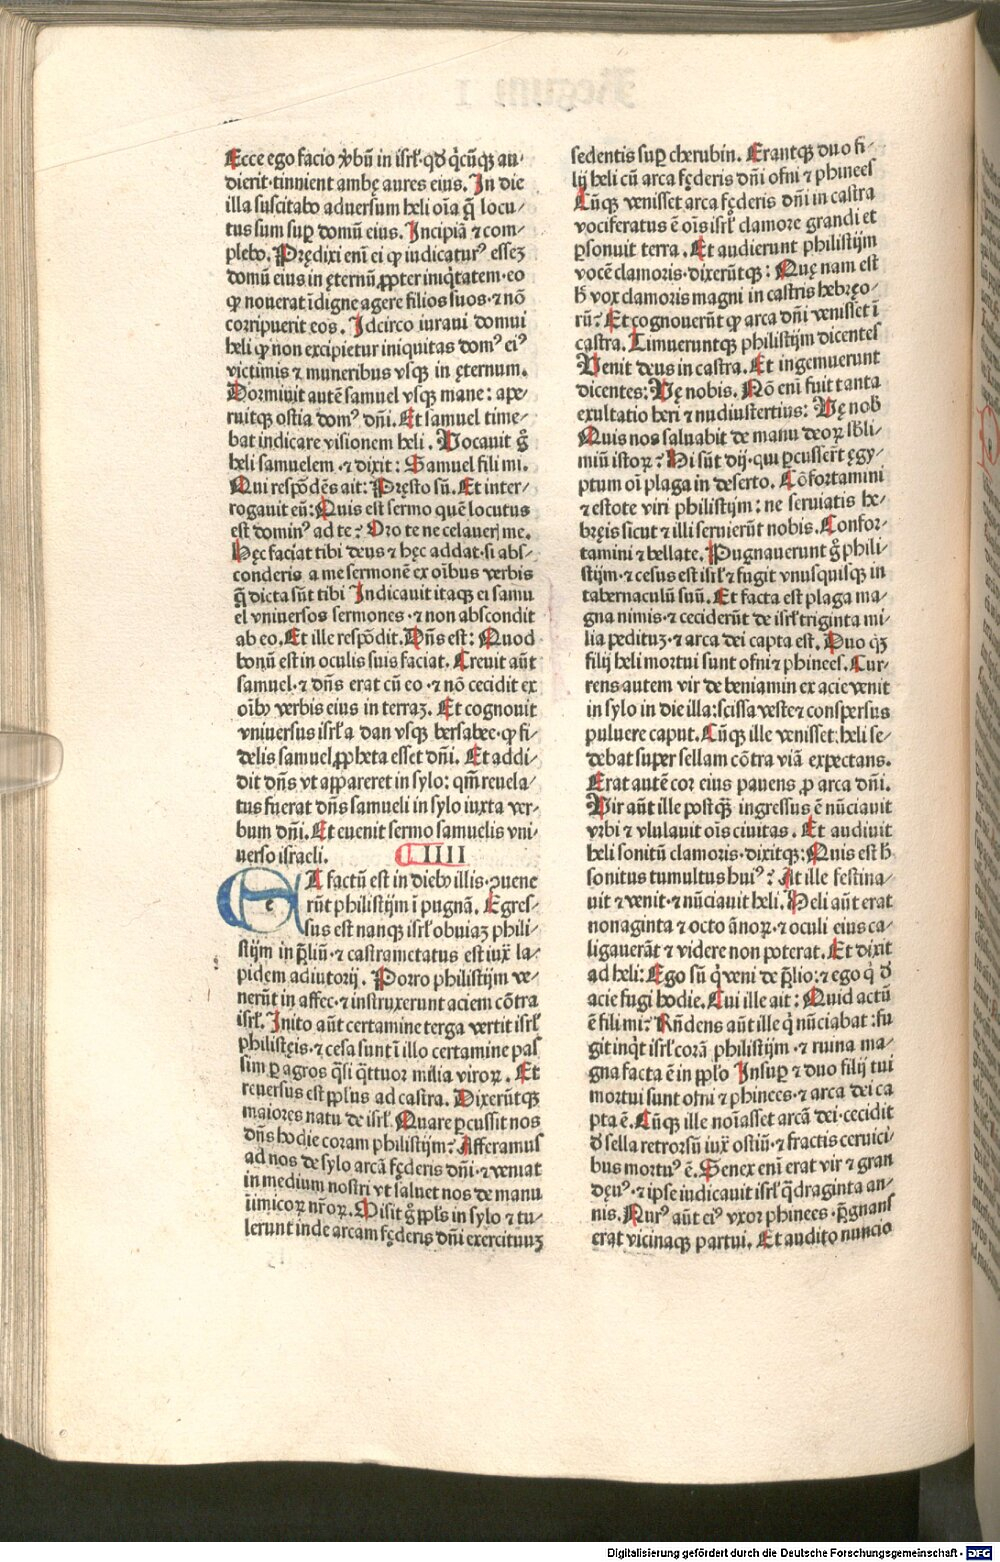 Ecce ego facio ꝟbũ in isrł·qđ q̇cũqꝫ au/
dierit·tinnient ambę aures eius. In die
illa suscitabo aduersum heli oı̃a q̃ locu/
tus sum suꝑ domũ eius. Incipiã ⁊ com/
plebo. Prędixi enı̃ ei ꝙ iudicaturꝰ esseꝫ
domũ eius in ęternũ ꝓpter iniq̇tatem·eo
ꝙ nouerat ı̃digne agere filios suos·⁊ nõ
corripuerit eos. Idcirco iuraui domui
heli ꝙ non excipietur iniquitas domꝰ eiꝰ
victimis ⁊ muneribus vsqꝫ in ęternum.
Dormiuit autẽ samuel vsqꝫ mane: ape/
ruitqꝫ ostia domꝰ dñi. Et samuel time/
bat indicare visionem heli. Vocauit g̊
heli samuelem·⁊ dixit: Samuel fili mi.
Qui respõdẽs ait: Pręsto sũ. Et inter/
rogauit eũ: Quis est sermo quẽ locutus
est dominꝰ ad te? Oro te ne celaueris me.
Hęc faciat tibi deus ⁊ hęc addat·si abs/
conderis a me sermonẽ ex oı̃bus verbis
q̃ dicta sũt tibi Indicauit itaqꝫ ei samu
el vniuersos sermones·⁊ non abscondit
ab eo. Et ille respõdit. Dñs est: Quod
bonũ est in oculis suis faciat. Creuit aũt
samuel·⁊ dñs erat cũ eo·⁊ nõ cecidit ex
oı̃bꝫ verbis eius in terraꝫ. Et cognouit
vniuersus isrł a dan vsqꝫ bersabee·ꝙ fi/
delis samuel ꝓpheta esset dñi. Et addi/
dit dñs vt appareret in sylo: qm̃ reuela/
tus fuerat dñs samueli in sylo iuxta ver/
bum dñi. Et euenit sermo samuelis vni/
uerso israeli. IIII
Et factũ est in diebꝫ illis·ꝯuene
rũt philistijm ı̃ pugnã. Egres/
sus est nanqꝫ isrł obuiaꝫ phili/
stijm in p̃liũ·⁊ castrametatus est iux̃ la/
pidem adiutorij. Porro philistijm ve/
nerũt in affec·⁊ instruxerunt aciem cõtra
isrł. Inito aũt certamine terga vertit isrł
philistęis·⁊ cesa sunt ı̃ illo certamine pas
sim ꝑ agros q̃si q̃ttuor milia viroꝝ. Et
reuersus est ppĺus ad castra. Dixerũtqꝫ
maiores natu de isrł. Quare ꝑcussit nos
dñs hodie coram philistijm? Afferamus
ad nos de sylo arcã fęderis dñi·⁊ veniat
in medium nostri vt saluet nos de manu
inimicoꝝ nr̃oꝝ. Misit g̊ ppĺs in sylo ⁊ tu/
lerunt inde arcam fęderis dñi exercituuꝫ
sedentis suꝑ cherubin. Erantqꝫ duo fi/
lij heli cũ arca fęderis dñi ofni ⁊ phinees
Cũqꝫ venisset arca fęderis dñi in castra
vociferatus ẽ oı̃s isrł clamore grandi et
ꝑsonuit terra. Et audierunt philistijm
vocẽ clamoris·dixerũtqꝫ: Quę nam est
h̃ vox clamoris magni in castris hebręo/
rũ? Et cognouerũt ꝙ arca dñi venisset ı̃
castra. Timueruntqꝫ philistijm dicentes
Venit deus in castra. Et ingemuerunt
dicentes: Vę nobis. Nõ enı̃ fuit tanta
exultatio heri ⁊ nudiustertius: Vę nob̃
Quis nos saluabit de manu deoꝝ sb̃li/
miũ istoꝝ? Hi sũt dij·qui ꝑcusser̃t ęgy/
ptum oı̃ plaga in deserto. Cõfortamini
⁊ estote viri philistijm: ne seruiatis he/
bręis sicut ⁊ illi seruierũt nobis. Confor/
tamini ⁊ bellate. Pugnauerunt g̊ phili/
stijm·⁊ cesus est isrł ⁊ fugit vnusquisqꝫ in
tabernaculũ suũ. Et facta est plaga ma/
gna nimis·⁊ ceciderũt de isrł triginta mi/
lia pedituꝫ·⁊ arca dei capta est. Duo qꝫ
filij heli mortui sunt ofni ⁊ phinees. Cur/
rens autem vir de beniamin ex acie venit
in sylo in die illa:scissa veste⁊ conspersus
puluere caput. Cũqꝫ ille venisset:heli se/
debat super sellam cõtra viã expectans.
Erat autẽ cor eius pauens ꝓ arca dñi.
Vir aũt ille postq̃ꝫ ingressus ẽ nũciauit
vrbi ⁊ vlulauit oı̃s ciuitas. Et audiuit
heli sonitũ clamoris·dixitqꝫ: Quis est h̃
sonitus tumultus huiꝰ? At ille festina/
uit ⁊ venit·⁊ nũciauit heli. Heli aũt erat
nonaginta ⁊ octo ãnoꝝ·⁊ oculi eius ca/
ligauerãt ⁊ videre non poterat. Et dixit
ad heli: Ego sũ q̇ veni de p̃lio:⁊ ego q̇ đ
acie fugi hodie. Cui ille ait: Quid actũ
ẽ fili mi? Rñdens aũt ille q̇ nũciabat:fu
git inq̇t isrł corã philistijm·⁊ ruina ma/
gna facta ẽ in ppĺo Insuꝑ ⁊ duo filij tui
mortui sunt ofni ⁊ phinees·⁊ arca dei ca
pta ẽ. Cũqꝫ ille noı̃asset arcã dei·cecidit
đ sella retrorsũ iux̃ ostiũ·⁊ fractis ceruici/
bus mortuꝰ ẽ. Senex enı̃ erat vir ⁊ gran
dęuꝰ·⁊ ipse iudicauit isrł q̃draginta an/
nis. Nurꝰ aũt eiꝰ vxor phinees·p̃gnans
erat vicinaqꝫ partui. Et audito nuncio
Digitalisierung gefördert durch die Deutsche Forschungsgemeinschaft - DFG